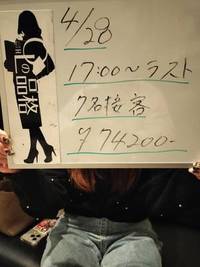 の品格
4/28
17:00〜ラスト
7名接客
¥74200-